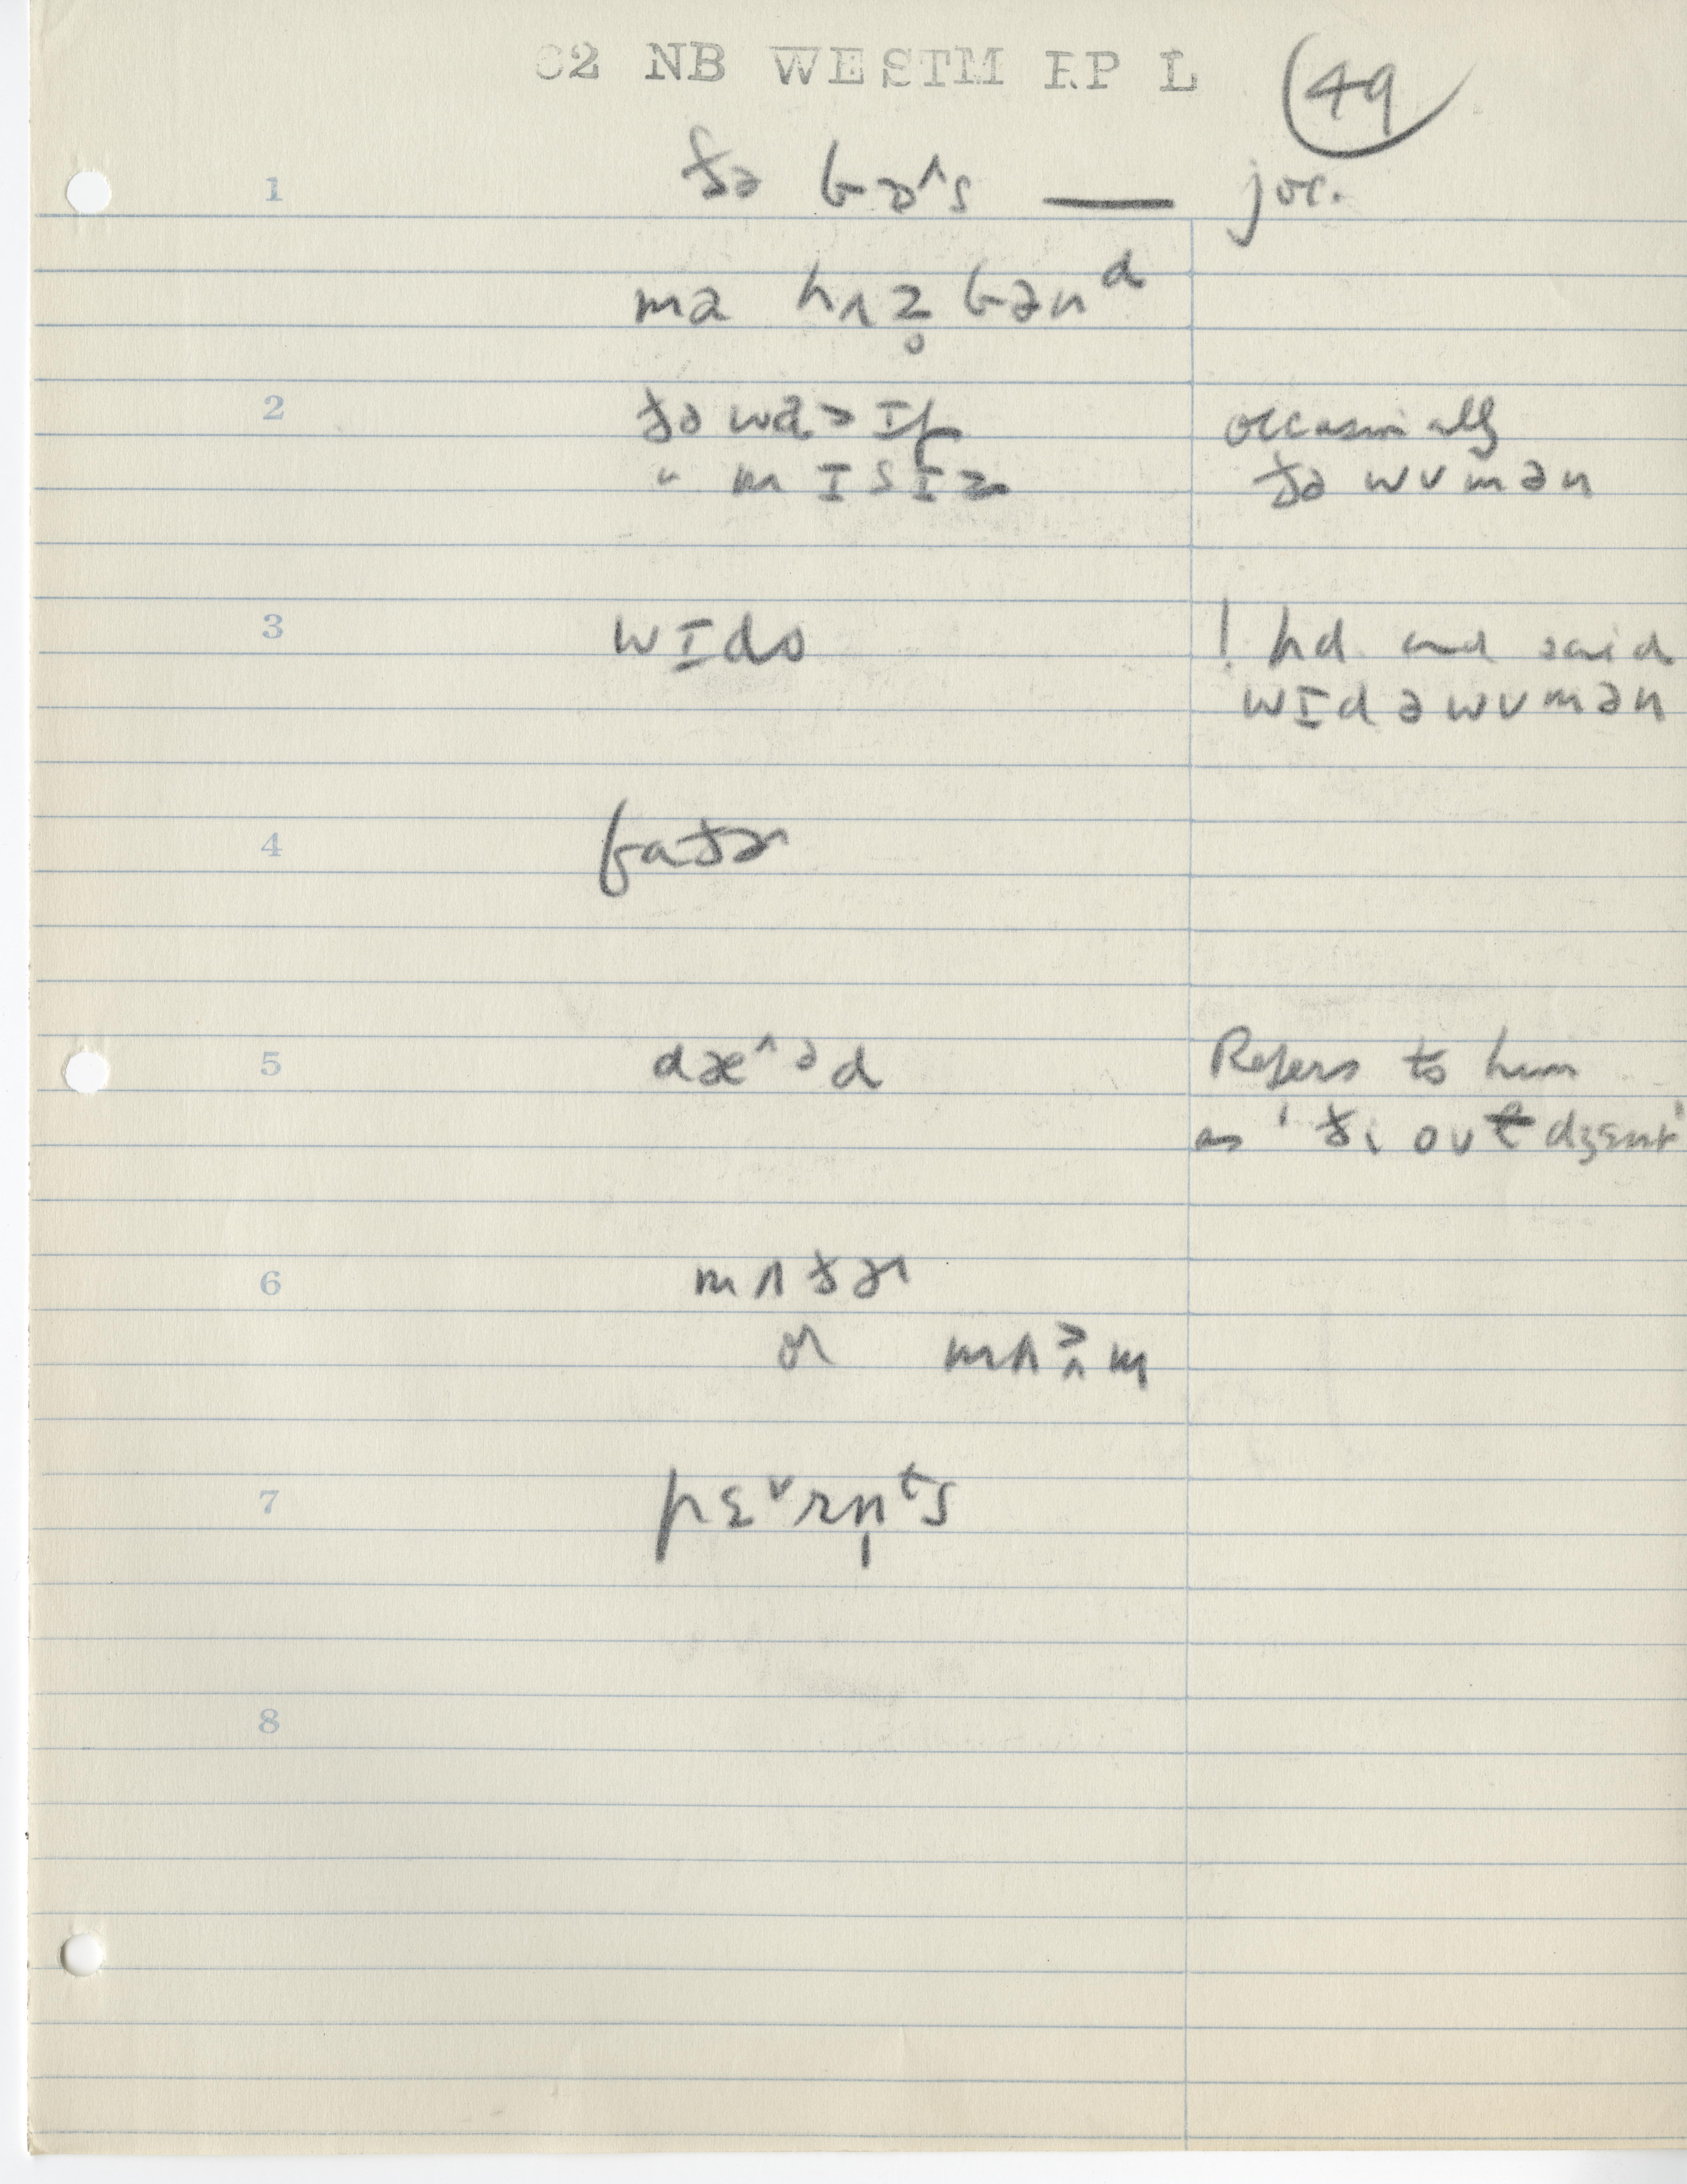 62 NB WESTM I.P L
49
1 ðə bɒ^s — joc.
mə hʌz̥bənᵈ
2 ðə waɪf occasionally
" mɪsɪz ðə wʊmən
3 wɪdo ! hd. and said
wɪdəwʊmən
4 faðɚ
5 dæ^ᵊd Refers to him
as 'ði out dʒɛnt'
6 mʌðɚ
or mʌ>m
7 pɛᵛrn̩ᵗs
8